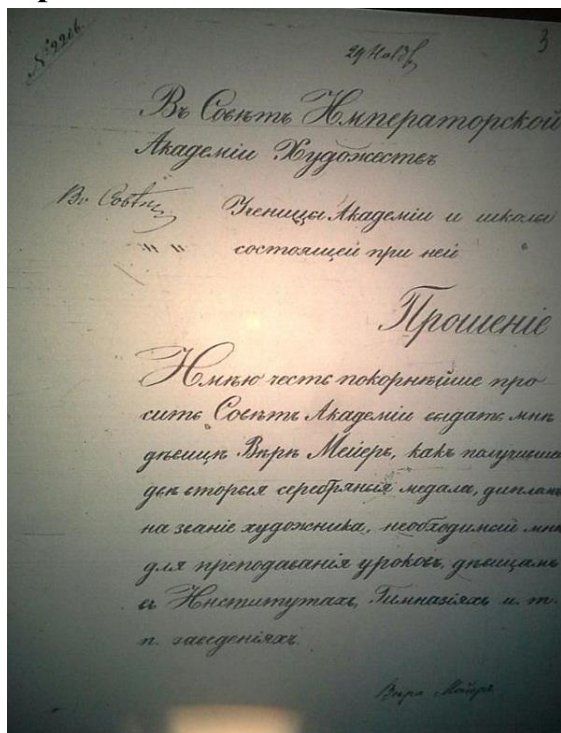 № 2266.
29 Нояб
3
Въ Совѣтъ Императорской
Академіи Художествъ
Въ Совѣтъ
Ученицы Академіи и школы
состоящей при ней
Прошеніе
Имѣю честь покорнѣйше про-
сить Совѣтъ Академіи выдать мнѣ
дѣвицѣ Вѣрѣ Мейеръ, какъ получившей
двѣ вторыя серебряныя медали, дипломъ
на званіе художника, необходимый мнѣ
для преподаванія уроковъ, дѣвицамъ
въ Институтахъ, Гимназіяхъ и. т.
п. заведеніяхъ.
Вѣра Мейеръ